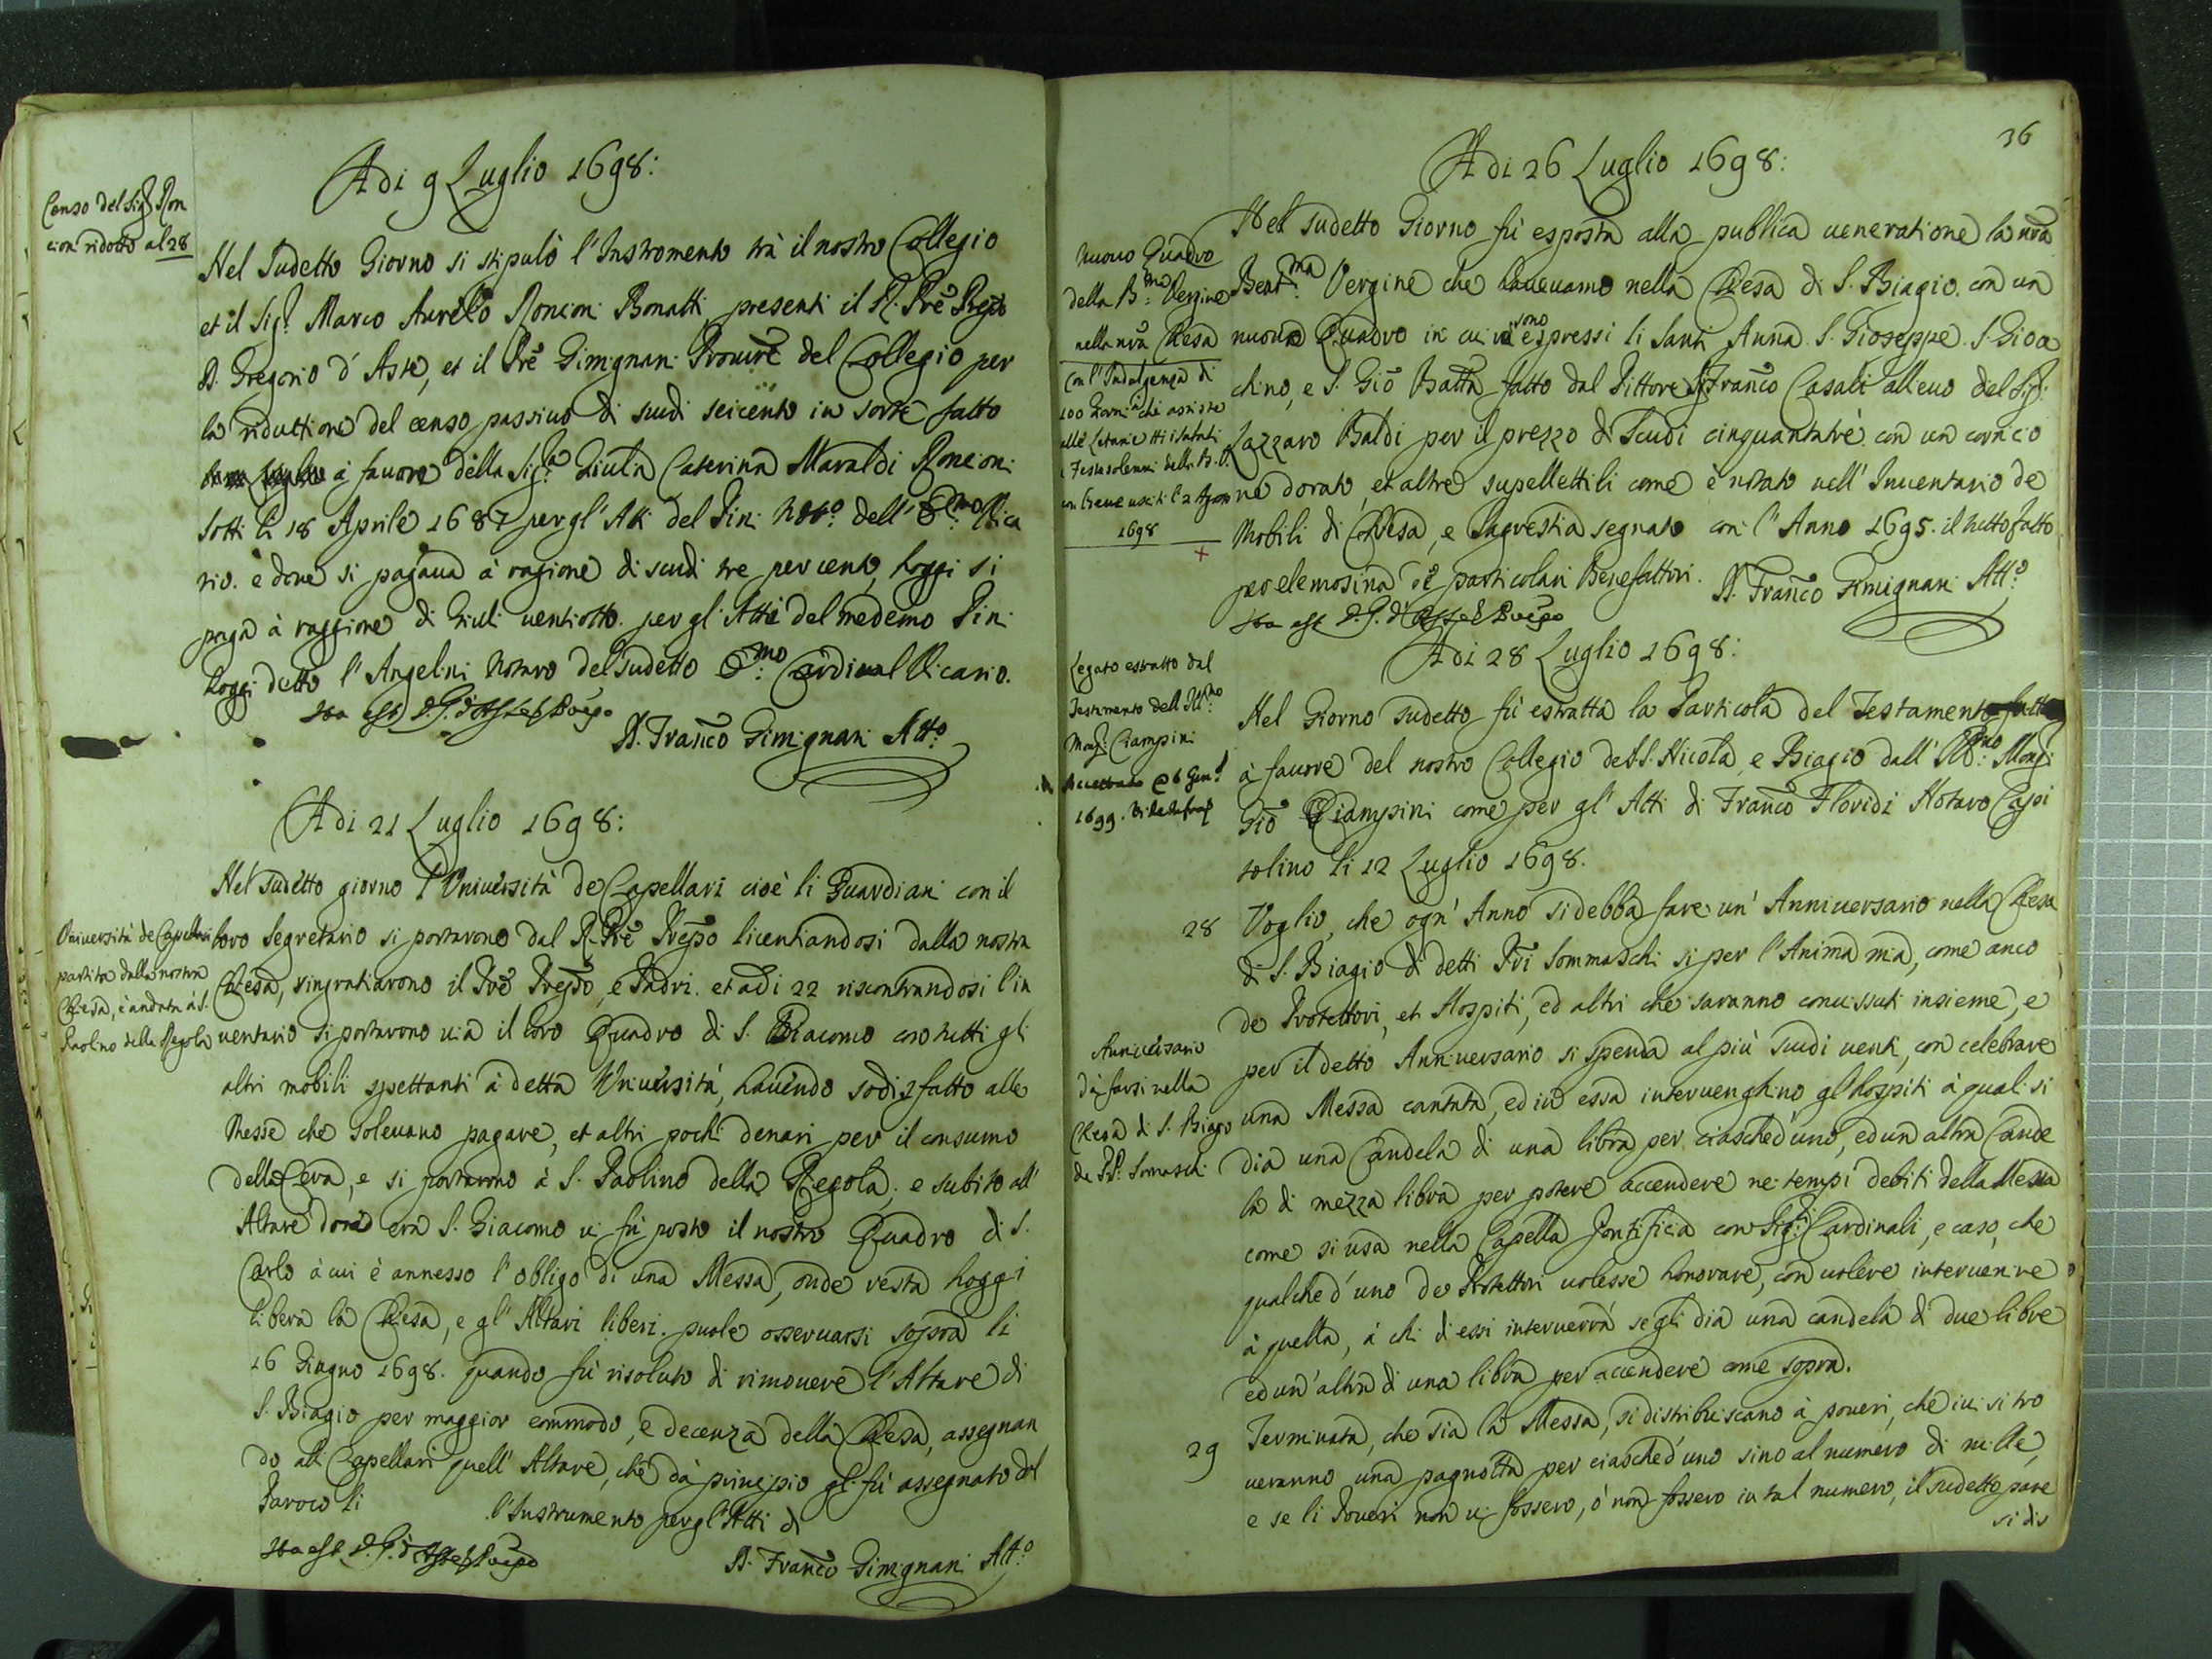 Adi 9 Luglio 1698:
Censo del Sig.r Ron
cioni ridotto al 28
Nel sudetto Giorno si stipulò l'Instromento trà il nostro Collegio
et il Sig.r Marco Aurelio Roncioni Bonatti, presenti il R. Prē Prepto
D. Gregorio d'Aste, et il Prē Gimignani Procurē del Collegio per
la riduttione del censo passiuo di scudi seicento in sorte fatto
à fauore della Sig.ra Giulia Caterina Maraldi Roncioni
sotti li 18 Aprile 1687 per gl'Atti del Pini Noto. dell'Emo: Vica
rio. e doue si pagaua à ragione di scudi tre per cento, hoggi si
paga à raggione di Giuli uentiotto. per gl'Atti del medemo Pini
hoggi detto l'Angelini Notaro del sudetto Emo: Cardinal Vicario.
Ita est D. G. d'Aste Prēpo
D. Franco Gimignani Atto:
Adi 21 Luglio 1698:
Nel sudetto giorno l'Uniuersità de Capellari cioè li Guardiani con il
Uniuersità de Capellari
partita dalla nostra
Chiesa, è andata à S.
Paolino della Regola
loro Segretario si portarono dal R. Prē Prepto licentiandosi dalla nostra
Chiesa, ringratiarono il Prē Prepto, e Padri. et adi 22 riscontrandosi l'in
uentario si portarono uia il loro Quadro di S. Giacomo con tutti gli
altri mobili spettanti à detta Uniuersità, hauendo sodisfatto alle
Messe che soleuano pagare, et altri pochi denari per il consumo
della Cera, e si portarono à S. Paolino della Regola, e subito all'
Altare doue era S. Giacomo ui fù posto il nostro Quadro di S.
Carlo à cui è annesso l'obligo di una Messa, onde resta hoggi
libera la Chiesa, e gl'Altari liberi. puole osseruarsi sopra li
16 Giugno 1698. quando fù risoluto di rimouere l'Altare di
S. Biagio per maggior commodo, e decenza della Chiesa, assegnan
do alli Capellari quell'Altare, che dà principio gli fù assegnato dal
Paroco li l'Instrumento per gl'Atti di
Ita est D. G. d'Aste Prēpo
D. Franco Gimignani Atto:
36
Adi 26 Luglio 1698:
Nuouo Quadro
della Bma: Vergine
nella nrā Chiesa
Con l'Indulgenza di
100 Giorni à chi assiste
alle Letanie tti i Sabati
e Feste solenni della B.V.
1698
+
Nel sudetto Giorno fù esposta alla publica ueneratione la nrā
Beatma: Vergine che haueuamo nella Chiesa di S. Biagio. con un
nuouo Quadro in cui ui sono espressi li Santi Anna. S. Gioseppe. S. Gioa
chino, e S. Giō Batta fatto dal Pittore Sig. Franco Casali alleuo del Sig:
Lazzaro Baldi per il prezzo di Scudi cinquantatrè con un cornicio
ne dorato, et altre supellettili come è notato nell'Inuentario de
Mobili di Chiesa, e Sagrestia segnato con l'Anno 1695. il tutto fatto
per elemosina de particolari Benefattori. D. Franco Gimignani Atto:
Ita est D. G. d'Aste Prēpo
Adi 28 Luglio 1698:
Legato estratto dal
Testamento dell'Illmo:
Monsig: Ciampini
1699.
Nel Giorno sudetto fù estratta la Particola del Testamento fatto
à fauore del nostro Collegio de S.S. Nicola, e Biagio dall'Illmo: Monsi:
Giō Ciampini come per gl'Atti di Franco Floridi Notaro Capi
tolino li 12 Luglio 1698.
28 Voglio, che ogn'Anno si debba fare un'Anniuersario nella Chiesa
di S. Biagio di detti Pri Sommaschi si per l'Anima mia, come anco
de Protettori, et Hospiti, ed altri che saranno conuissuti insieme, e
Anniuersario
dà farsi nella
Chiesa di S. Biagio
de PP. Somaschi
per il detto Anniuersario si spenda al più scudi uenti, con celebrare
una Messa cantata, ed in essa interuenghino gl'hospiti à quali si
dia una Candela di una libra per ciasched'uno, ed un altra Cande
la di mezza libra per potere accendere ne tempi debiti della Messa
come si usa nella Capella Pontificia con Sigri: Cardinali, e caso, che
qualched'uno de Protettori uolesse honorare, con uolere interuenire
à quella, à chi di essi interuerrà se gli dia una candela di due libre
ed un'altra di una libra per accendere come sopra.
29 Terminata, che sia la Messa, si distribuiscano à poueri, che iui si tro
ueranno una pagnotta per ciasched'uno sino al numero di mille,
e se li Poueri non ui fossero, ò non fossero in tal numero, il sudetto pane
si dis